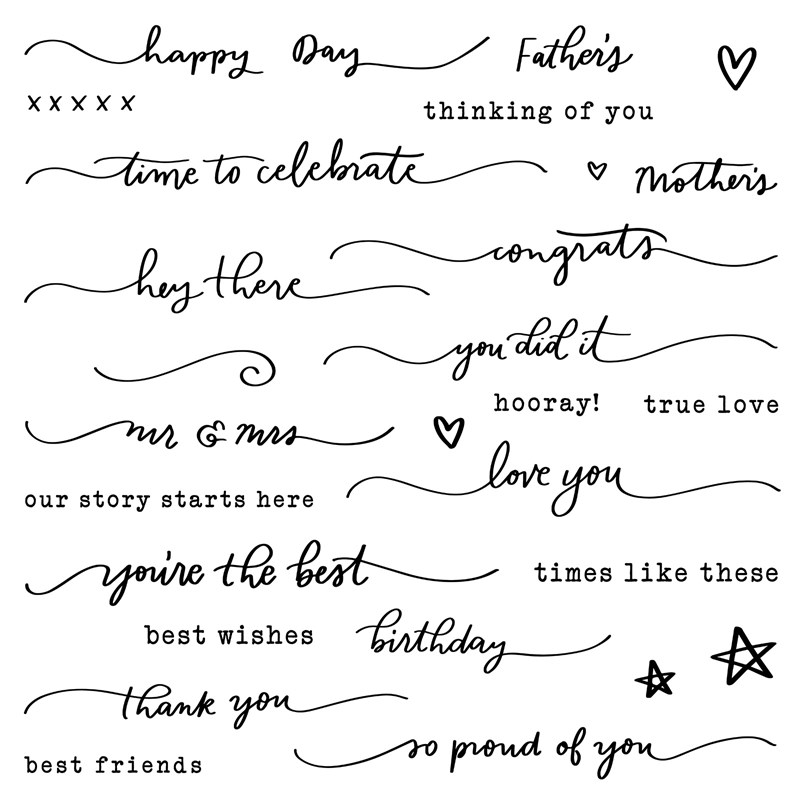 happy Day Father's
x x x x x
thinking of you
time to celebrate Mother's
congrats
hey there
you did it
hooray! true love
mr & mrs
love you
our story starts here
you're the best times like these
best wishes birthday
thank you
so proud of you
best friends